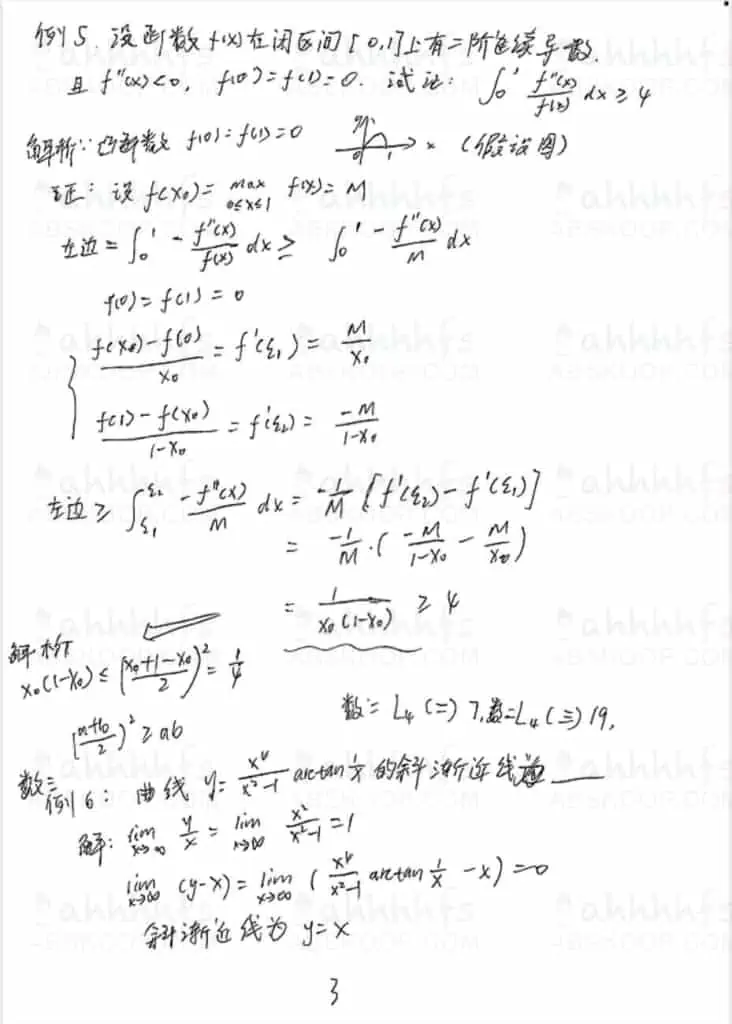 例5. 设函数 f(x) 在闭区间 [0,1] 上有二阶连续导数
且 f''(x)<0, f(0)=f(1)=0. 试证: ∫₀¹ f''(x)/f(x) dx ≥ 4
解析: 凸函数 f(0)=f(1)=0 y 0 1 x (假设图)
证: 设 f(x₀)= max_{0≤x≤1} f(x)=M
左边=∫₀¹ -f''(x)/f(x) dx ≥ ∫₀¹ -f''(x)/M dx
f(0)=f(1)=0
{ (f(x₀)-f(0))/x₀ = f'(ξ₁) = M/x₀
(f(1)-f(x₀))/(1-x₀) = f'(ξ₂) = -M/(1-x₀)
左边≥ ∫_{ξ₁}^{ξ₂} -f''(x)/M dx = -1/M [f'(ξ₂)-f'(ξ₁)]
= -1/M·(-M/(1-x₀) - M/x₀)
= 1/(x₀(1-x₀)) ≥ 4
解析
x₀(1-x₀) ≤ [(x₀+1-x₀)/2]² = 1/4
[(a+b)/2]² ≥ab
数二 L₄(二)7,数二L₄(三)19,
数二
例6: 曲线 y= x⁴/(x²-1) arctan 1/x 的斜渐近线为
解: lim_{x→∞} y/x = lim_{x→∞} x²/(x²-1) =1
lim_{x→∞} (y-x)= lim_{x→∞} ( x⁴/(x²-1) arctan 1/x -x)=0
斜渐近线为 y=x
3
ahhhhfs
ABSKOOP.COM